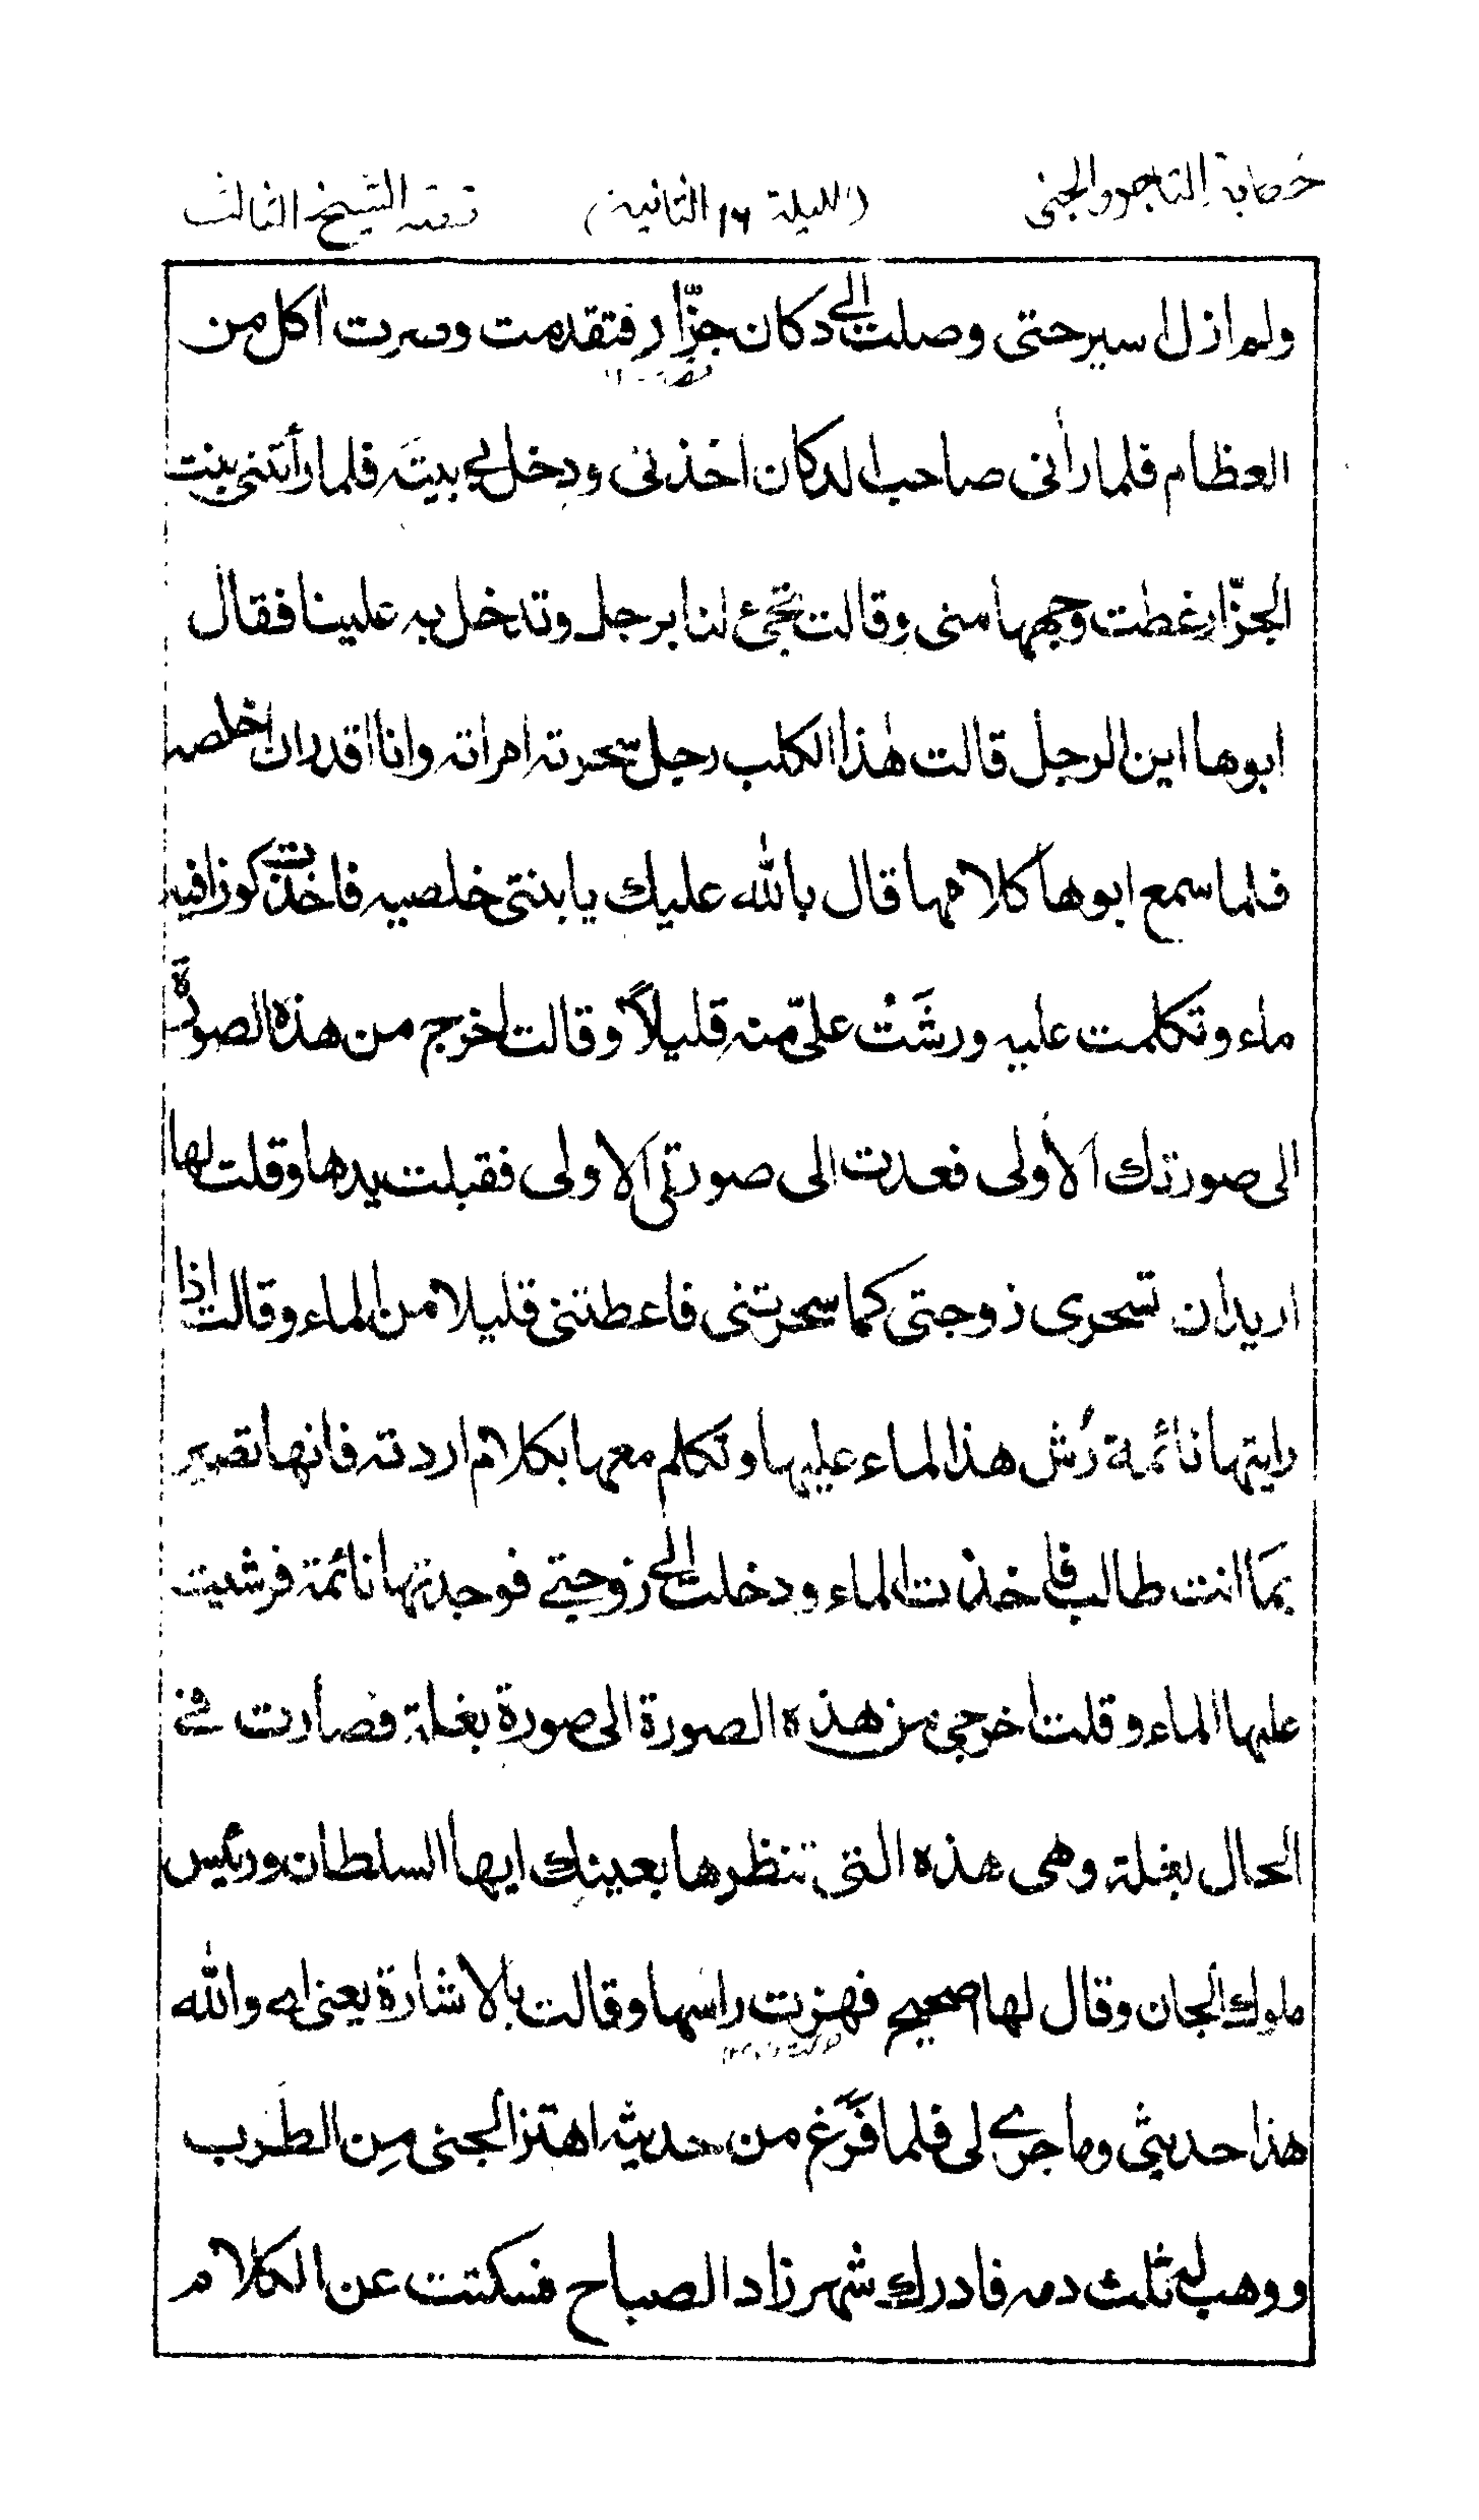 حكاية التاجر والجني (الليلة ١٦ الثانية) قصة الشيخ الثالث
ولم ازل اسير حتى وصلت الى دكان جزّار فتقدمت وصرت اكل من
العظام فلما رأنى صاحب الدكان اخذنى ودخل بى بيته فلما رأتنى بنت
الجزّار غطت وجهها منى وقالت تجىء لنا برجل وتدخل به علينا فقال
ابوها اين الرجل قالت هٰذا الكلب رجل سحرته امراته وانا اقدر ان اخلصه
فلما سمع ابوها كلامها قال بالله عليك يا بنتى خلصيه فاخذت كوزا فيه
ماء وتكلمت عليه ورشَتْ علىّ منه قليلاً وقالت اخرج من هذه الصورة
الى صورتك الأولى فعدت الى صورتى الاولى فقبلت يدها وقلت لها
اريد ان تسحرى زوجتى كما سحرتنى فاعطتنى قليلا من الماء وقالت اذا
رايتها نائمة رُش هذا الماء عليها وتكلم معها بكلام اردته فانها تصير
بمَا انت طالب فاخذت الماء ودخلت الى زوجتى فوجدتها نائمة فرشيت
عليها الماء وقلت اخرجى من هذه الصورة الى صورة بغلة فصارت فى
الحال بغلة وهى هذه التى تنظرها بعينك ايها السلطان ورئيس
ملوك الجان وقال لها اصحيح فهزت راسها وقالت بالاشارة يعنى اى والله
هذا حديثى وما جرى لى فلما فَرَغ من حديثه اهتز الجنى مِن الطَرب
ووهب له ثلث دمه فادرك شهرزاد الصباح فسكتت عن الكلام